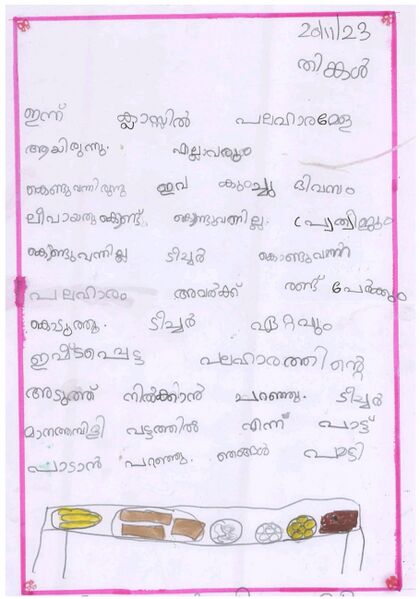 20/11/23
തിങ്കൾ
ഇന്ന് ക്ലാസ്സിൽ പലഹാരമേള
ആയിരുന്നു. എല്ലാവരും
കൊണ്ടുവന്നിരുന്നു ഇവ കുറച്ചു ദിവസം
ലീവായതുകൊണ്ട് കൊണ്ടുവന്നില്ല.
കൊണ്ടുവന്നില്ല ടീച്ചർ കൊണ്ടുവന്ന
പലഹാരം അവർക്ക് രണ്ട് പേർക്കും
കൊടുത്തു. ടീച്ചർ ഏറ്റവും
ഇഷ്ടപ്പെട്ട പലഹാരത്തിന്റെ
അടുത്ത് നിൽക്കാൻ പറഞ്ഞു. ടീച്ചർ
മാനത്തമ്പിളി വട്ടത്തിൽ എന്ന് പാട്ട്
പാടാൻ പറഞ്ഞു. ഞങ്ങൾ